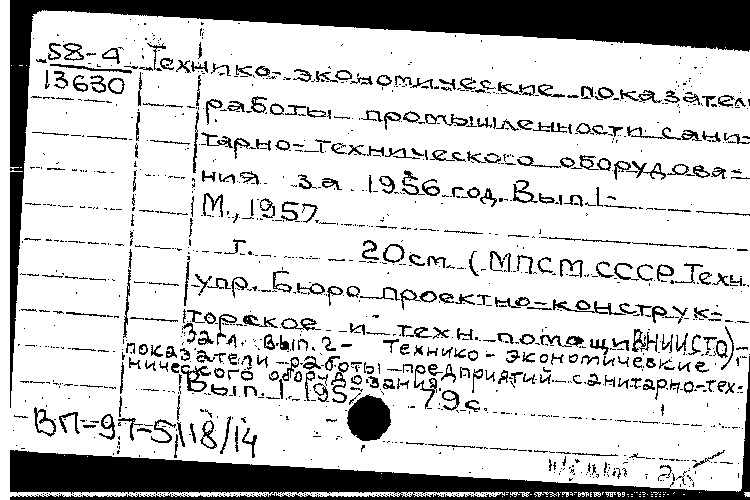 58-4 Технико-экономические показатели
13630
работы промышленности сани-
тарно-технического оборудова-
ния за 1956 год. Вып. 1-
М., 1957.
т. 20см (МПСМ СССР. Техн.
упр. Бюро проектно-конструк-
торское и техн. помощи ВНИИСТО)-
Загл. вып. 2 - Технико-экономические
показатели работы предприятий санитарно-тех-
нического оборудования
Вып. 1 1957 79с.
ВП-97-5118/14